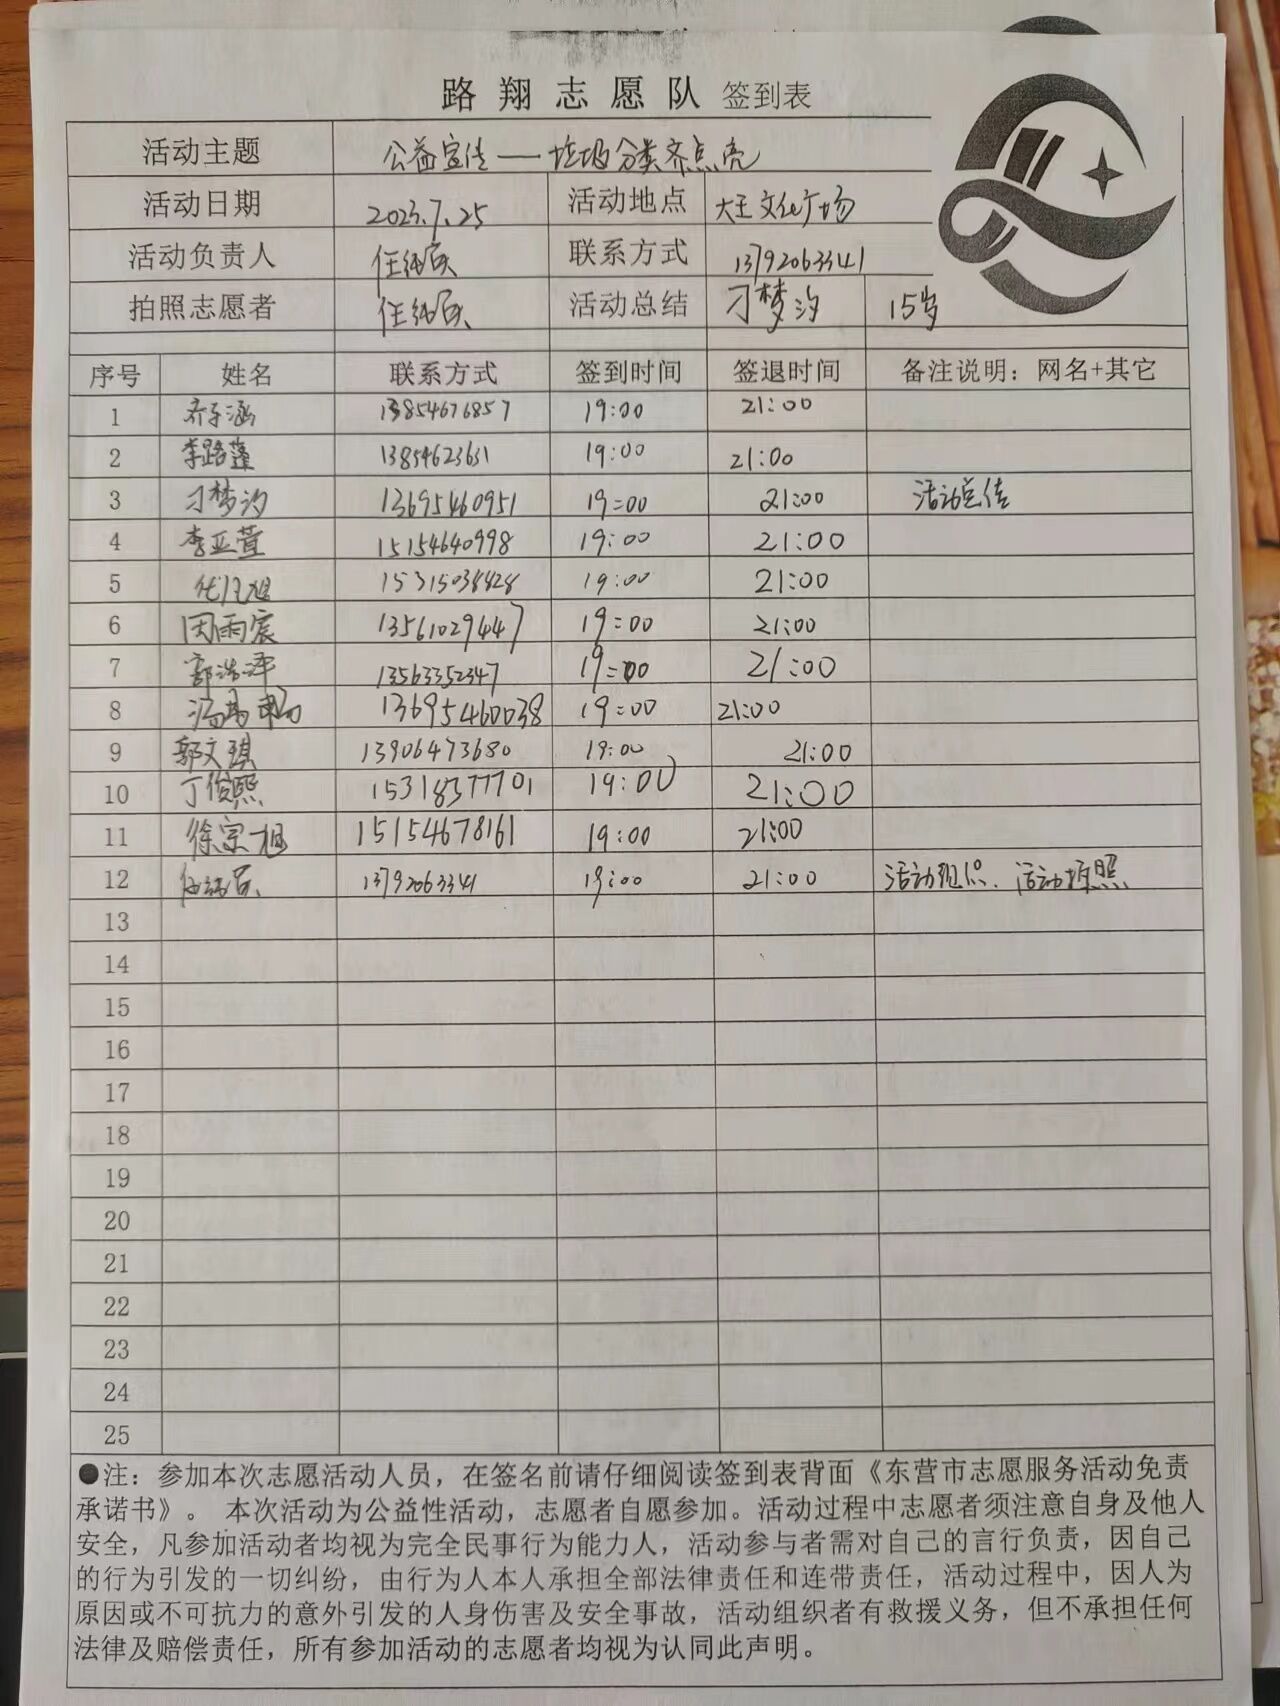 路翔志愿队 签到表
活动主题 公益宣传——垃圾分类齐点亮
活动日期 2023.7.25 活动地点 大王文化广场
活动负责人 联系方式 13792063341
拍照志愿者 活动总结 刁梦汐 15岁
序号 姓名 联系方式 签到时间 签退时间 备注说明：网名+其它
1 13854676857 19:00 21:00
2 李路蓬 13854623631 19:00 21:00
3 刁梦汐 13695460951 19:00 21:00 活动总结
4 李亚萱 15154640998 19:00 21:00
5 15315038428 19:00 21:00
6 田雨宸 13561029447 19:00 21:00
7 郭浩泽 13563352347 19:00 21:00
8 13695460038 19:00 21:00
9 郭文琪 13906473680 19:00 21:00
10 丁俊熙 15318377701 19:00 21:00
11 徐宗旭 15154678161 19:00 21:00
12 13792063341 19:00 21:00 活动组织、活动拍照
13
14
15
16
17
18
19
20
21
22
23
24
25
●注：参加本次志愿活动人员，在签名前请仔细阅读签到表背面《东营市志愿服务活动免责
承诺书》。 本次活动为公益性活动，志愿者自愿参加。活动过程中志愿者须注意自身及他人
安全，凡参加活动者均视为完全民事行为能力人，活动参与者需对自己的言行负责，因自己
的行为引发的一切纠纷，由行为人本人承担全部法律责任和连带责任，活动过程中，因人为
原因或不可抗力的意外引发的人身伤害及安全事故，活动组织者有救援义务，但不承担任何
法律及赔偿责任，所有参加活动的志愿者均视为认同此声明。